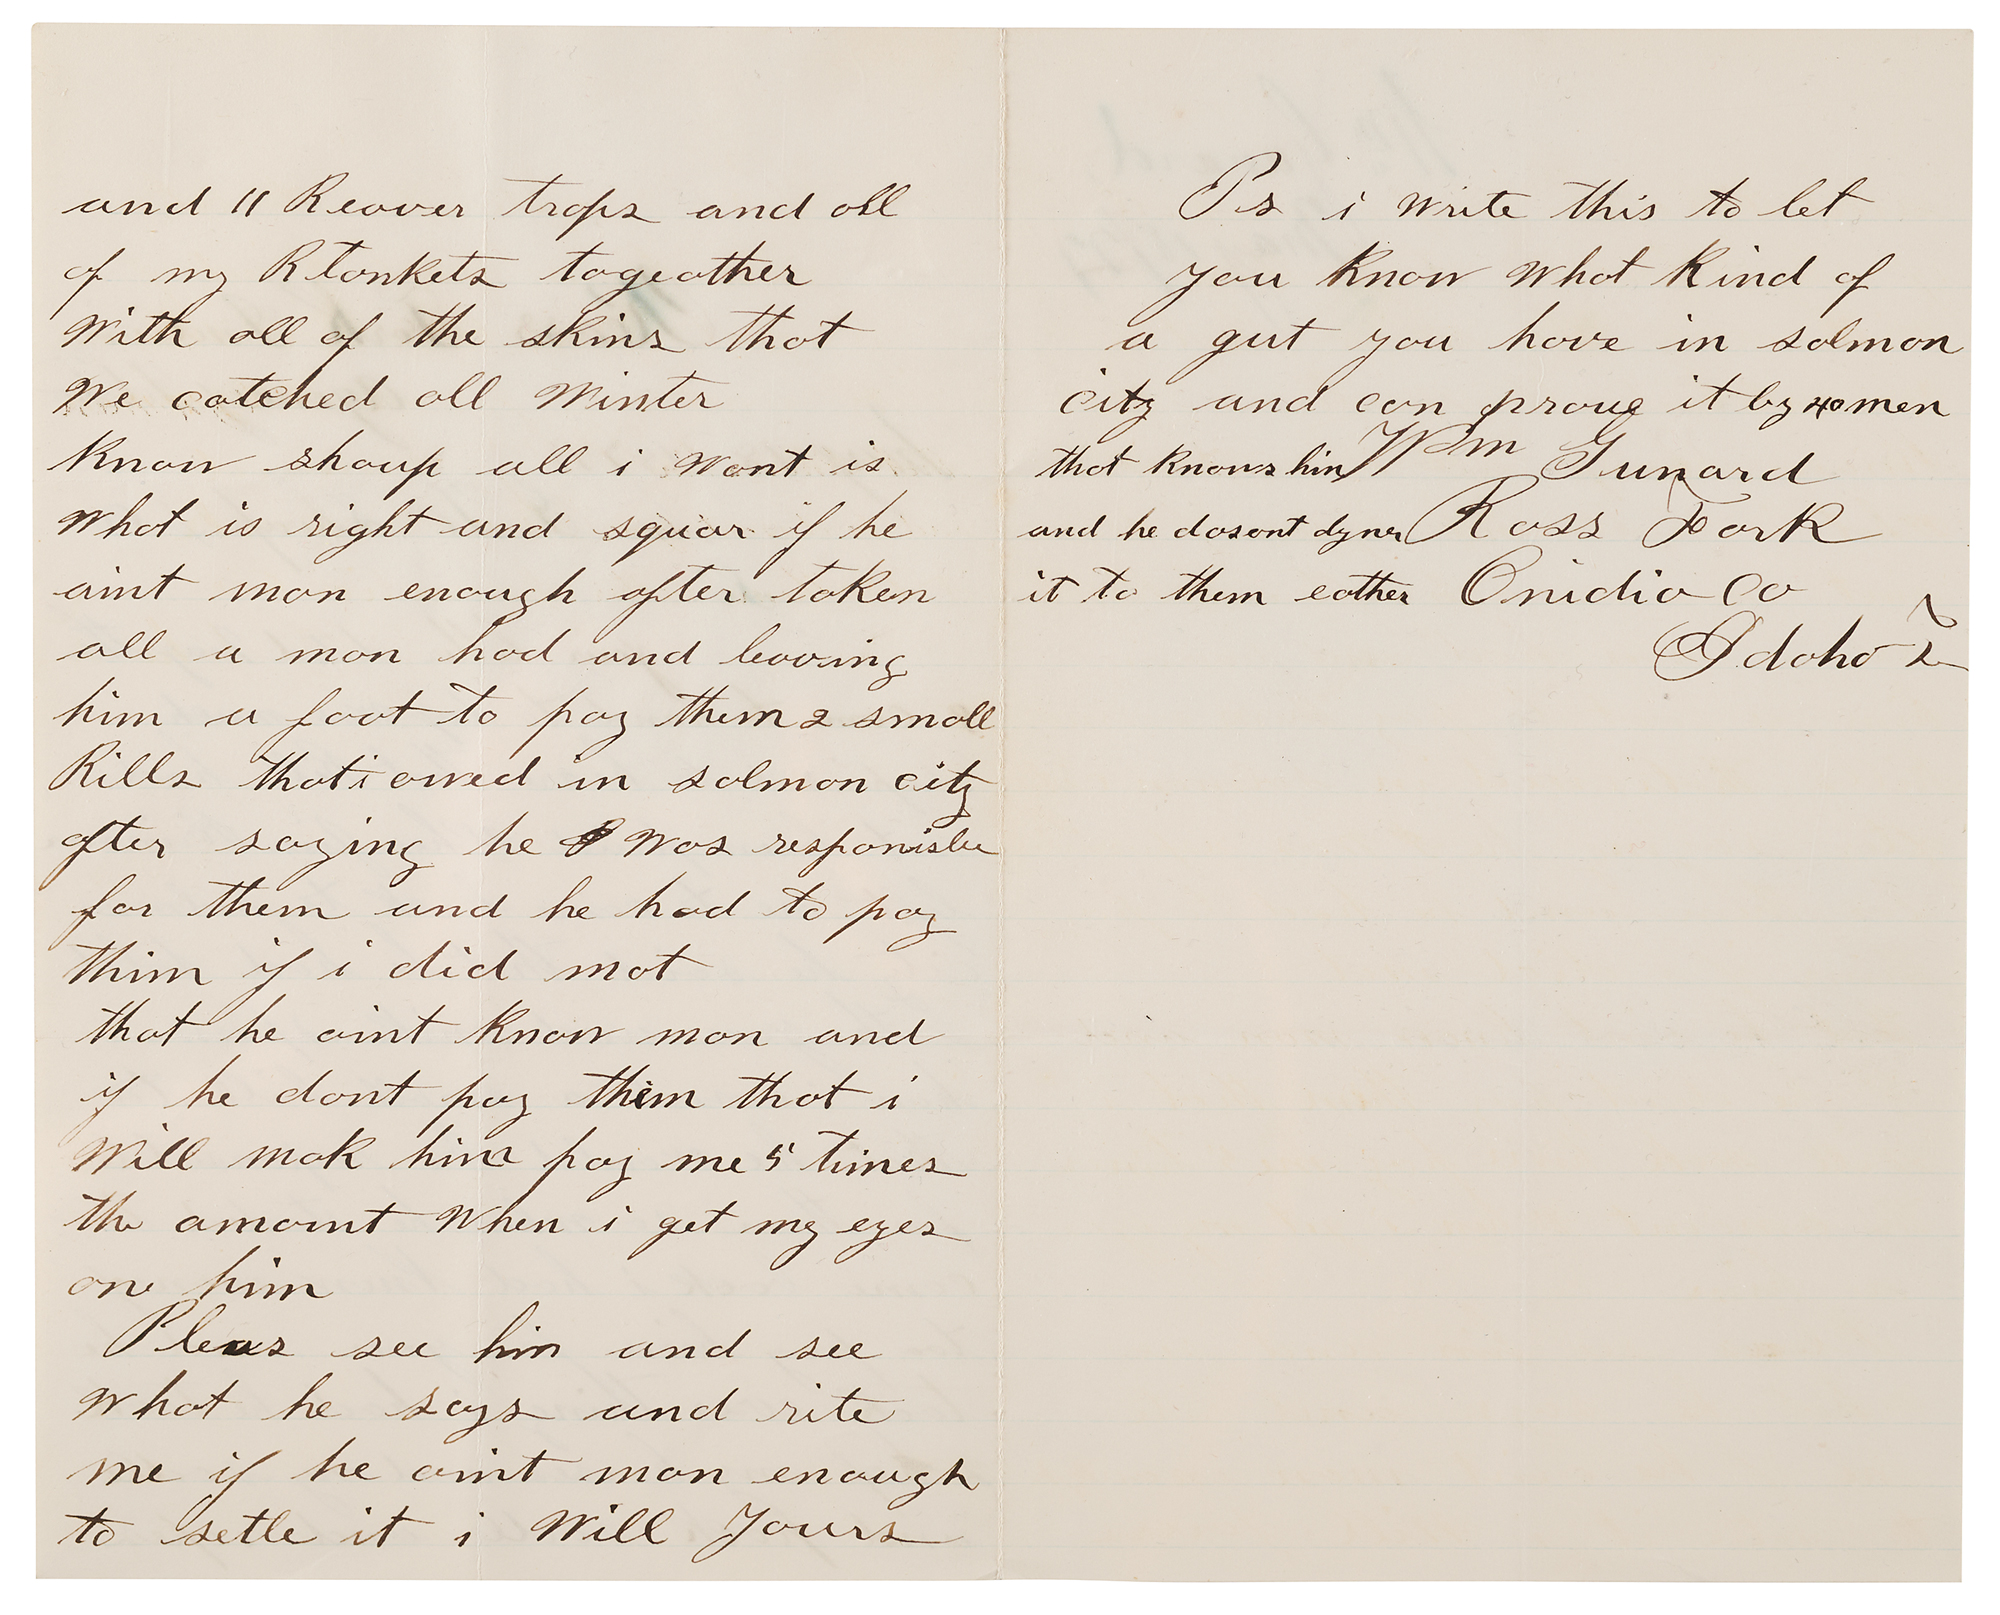 and 11 Beaver traps and all
of my Blankets togeather
With all of the skins that
We catched all Winter
Know shoup all i Want is
What is right and squar if he
aint man enough after taken
all a man had and leaving
him a foot to pay them 2 small
Bills that i owed in salmon city
after saying he Was responisbe
for them and he had to pay
thim if i did not
that he aint Know man and
if he dont pay them that i
Will mak him pay me 5 times
the amount When i get my eyes
one him
Pleas see him and see
What he says and rite
me if he aint man enough
to setle it i Will Yours
Ps i Write this to let
you Know What Kind of
a gut you have in salmon
city and can prove it by 40 men
that Knows him Wm Gunard
and he dosont dyner Ross Fork
it to them eather Onidia Co
Idaho T